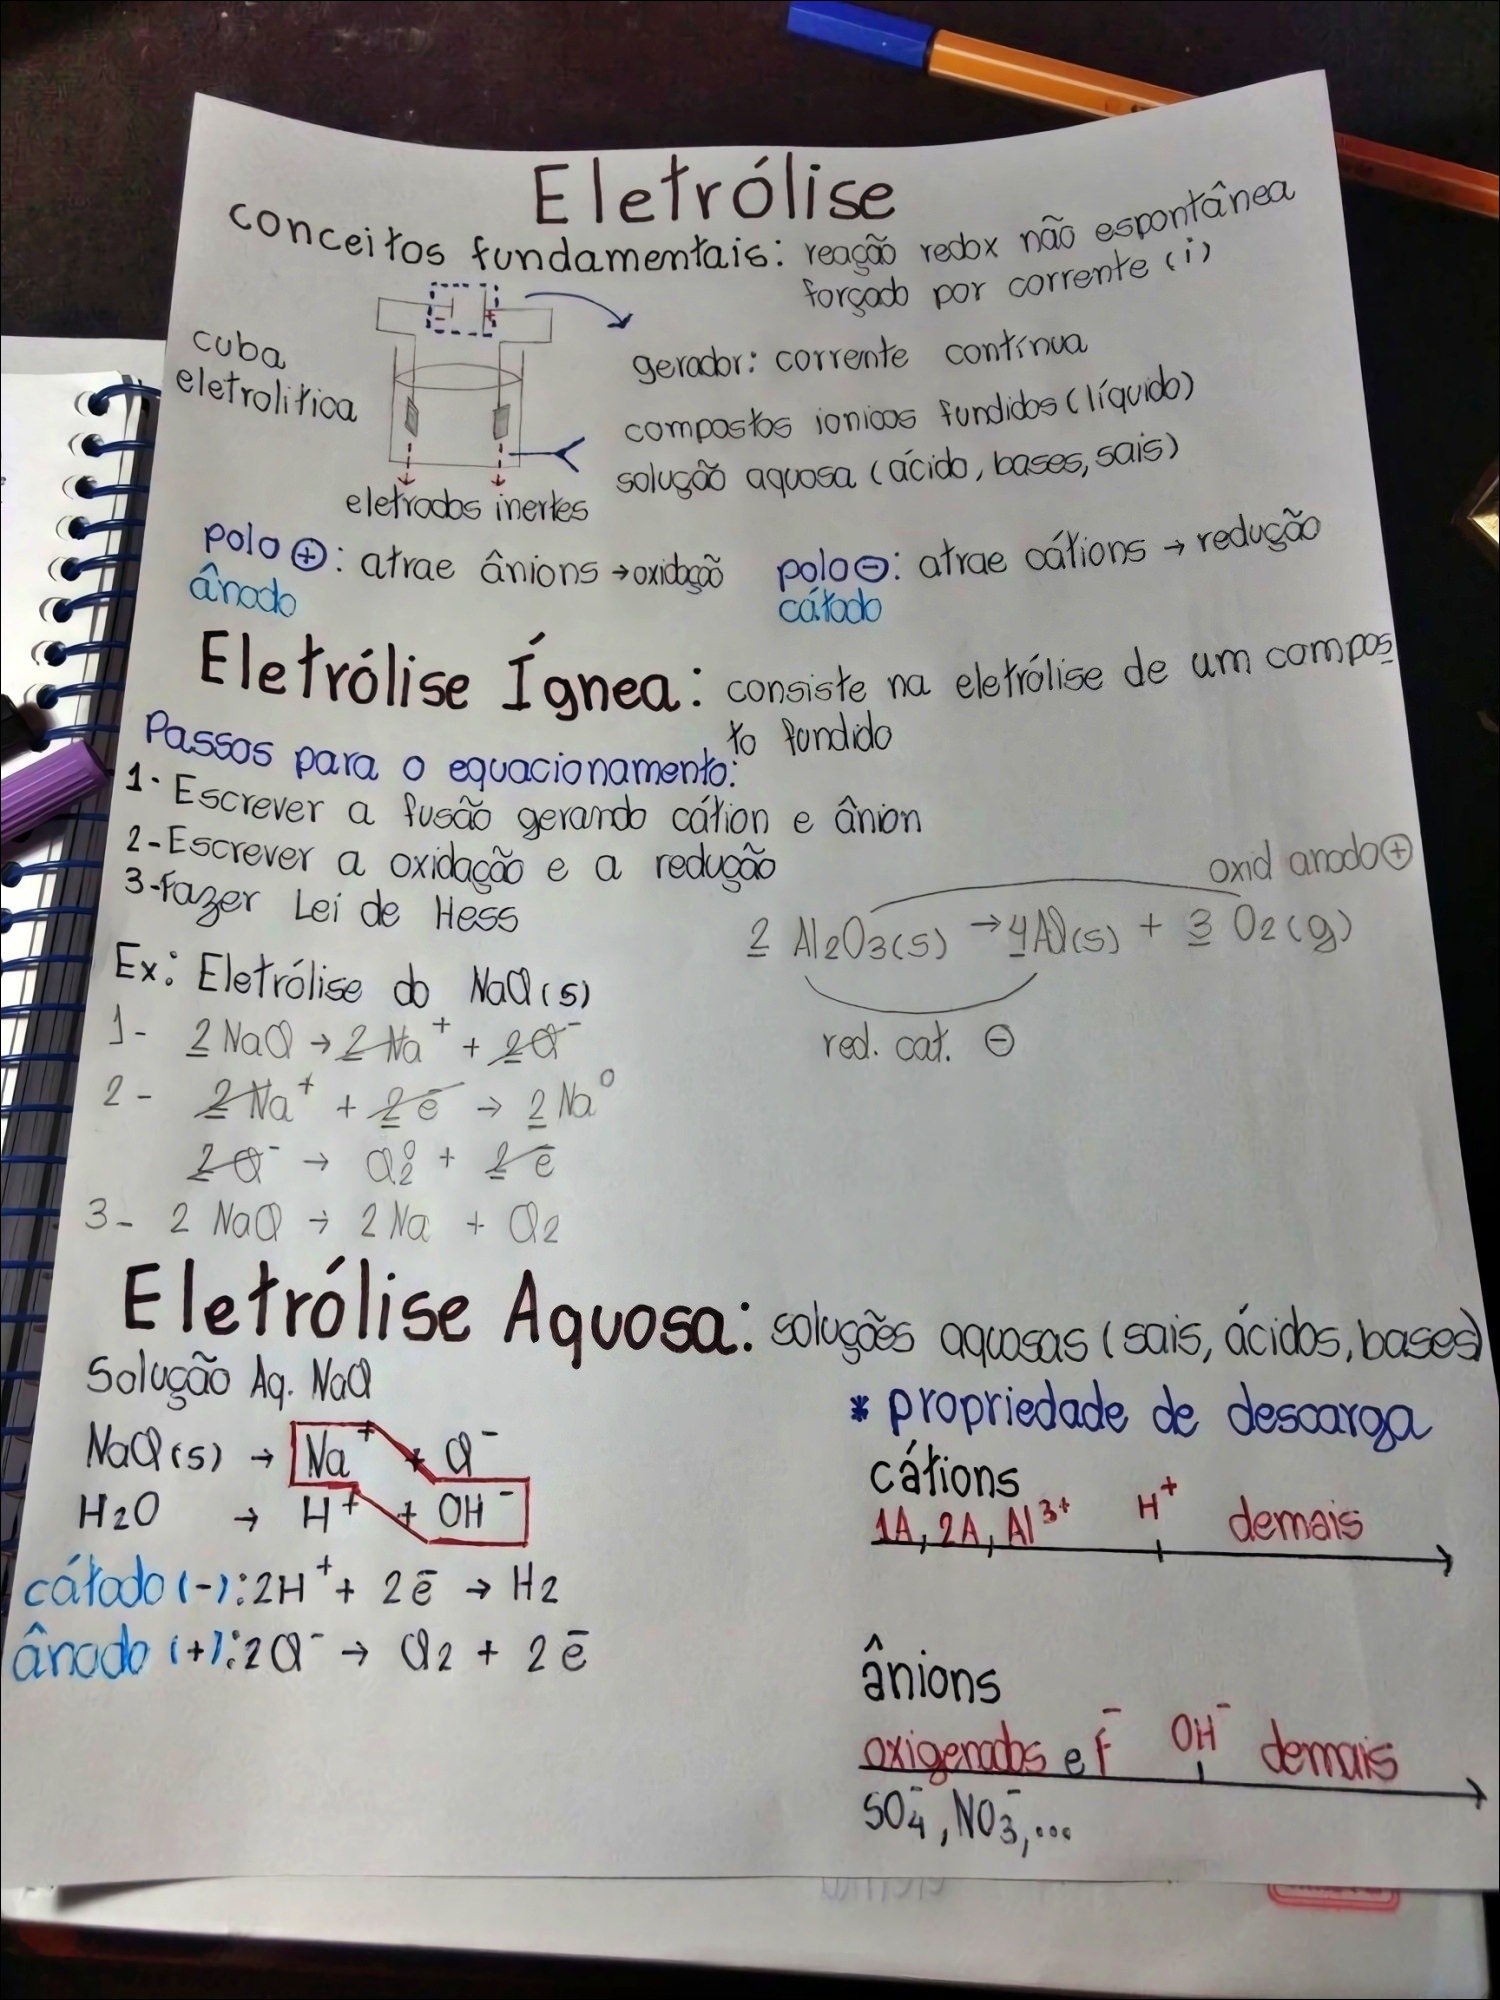 Eletrólise
conceitos fundamentais: reação redox não espontânea
forçado por corrente (i)
- +
cuba
eletrolitica
gerador: corrente contínua
compostos ionicos fundidos (líquido)
solução aquosa (ácido, bases, sais)
eletrodos inertes
polo ⊕: atrae ânions → oxidação
ânodo
polo ⊖: atrae cátions → redução
cátodo
Eletrólise Ígnea: consiste na eletrólise de um compos
to fundido
Passos para o equacionamento:
1- Escrever a fusão gerando cátion e ânion
2- Escrever a oxidação e a redução
3- Fazer Lei de Hess
oxid anodo ⊕
2 Al2O3(s) → 4Al(s) + 3 O2(g)
red. cat. ⊖
Ex: Eletrólise do NaCl(s)
1- 2 NaCl → 2 Na⁺ + 2Cl⁻
2- 2 Na⁺ + 2 ē → 2 Na⁰
2 Cl⁻ → Cl2⁰ + 2 ē
3- 2 NaCl → 2 Na + Cl2
Eletrólise Aquosa: soluções aquosas (sais, ácidos, bases)
Solução Aq. NaCl
NaCl(s) → Na⁺ + Cl⁻
H2O → H⁺ + OH⁻
cátodo (-): 2H⁺ + 2ē → H2
ânodo (+): 2Cl⁻ → Cl2 + 2ē
* propriedade de descarga
cátions
1A, 2A, Al³⁺ H⁺ demais
ânions
oxigenados e F⁻ OH⁻ demais
SO4⁻, NO3⁻, ...